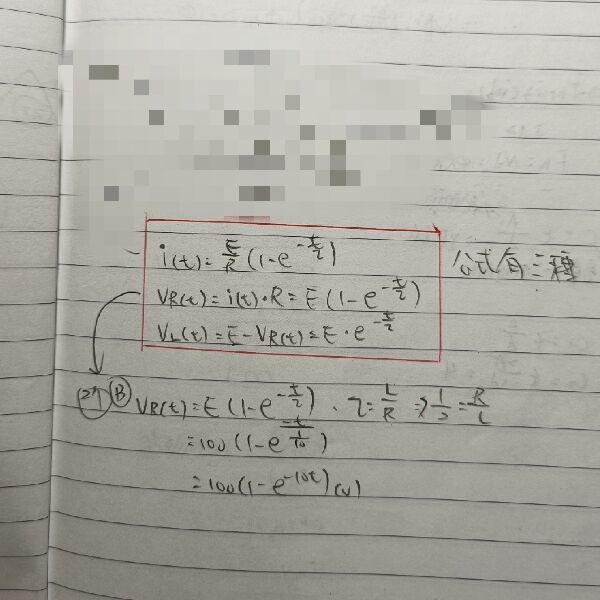 i(t)=E/R(1-e^-t/τ)
VR(t)=i(t)·R=E(1-e^-t/τ)
VL(t)=E-VR(t)=E·e^-t/τ
公式有三種
27 B VR(t)=E(1-e^-t/τ)、τ=L/R⇒1/τ=R/L
=100(1-e^-t/(1/10))
=100(1-e^-10t)(V)